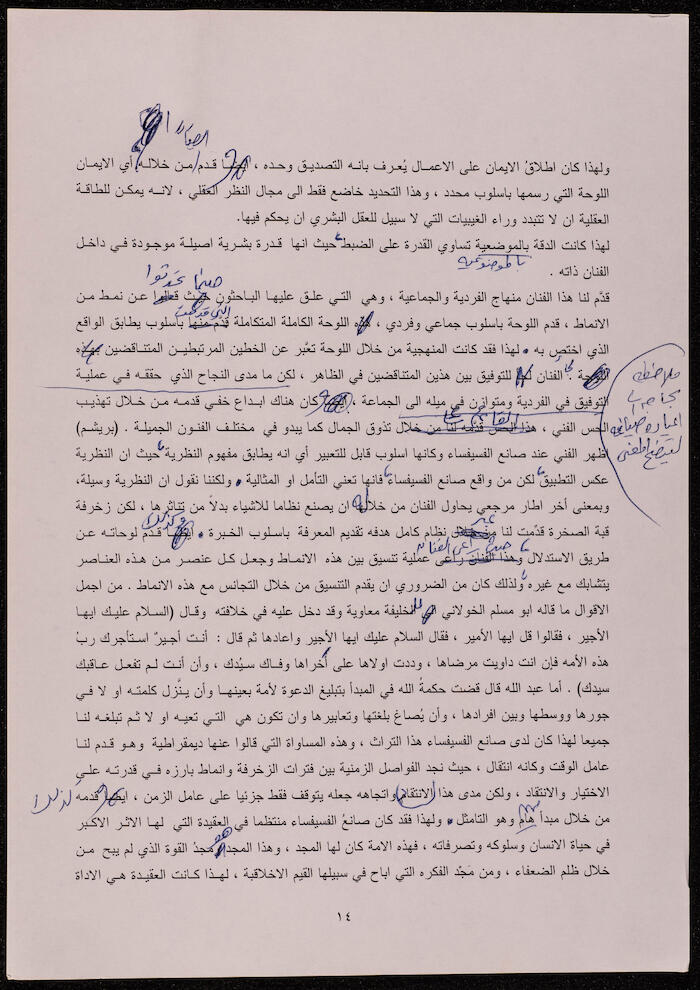 ولهذا كان اطلاقُ الايمان على الاعمـال يُعـرف بانـه التصديـق وحده ، ايضـا قـدم مـن خلالـه أي الايمـان
اللوحة التي رسمها باسلوب محدد ، وهذا التحديد خاضع فقط الى مجال النظر العقلي ، لانـه يمكـن للطاقـة
العقلية ان لا تتبدد وراء الغيبيات التي لا سبيل للعقل البشري ان يحكم فيها.
لهذا كانت الدقة بالموضعية تساوي القدرة على الضبط حيث انها قـدرة بشريـة اصيلـة موجـودة فـي داخـل
بالموضوعيه
الفنان ذاته .
حينما تحدثوا
قدَّم لنا هذا الفنان منهاج الفردية والجماعية ، وهي التـي علـق عليهـا البـاحثون حيـث قـالوا عـن نمـط مـن
الانماط ، قدم اللوحة باسلوب جماعي وفردي ، اللوحة الكاملة المتكاملة قدّم منهـا باسلوب يطابق الواقع
الذي اختص به . لهذا فقد كانت المنهجية من خلال اللوحة تعبّر عن الخطين المرتبطيـن المتناقضيـن
الفنان للتوفيق بين هذين المتناقضين في الظاهر ، لكن ما مدى النجاح الذي حققـه فـي عمليـة
التوفيق في الفردية ومتوازن في ميله الى الجماعة ، كان هناك ابداع خفـي قدمـه مـن خـلال تهذيـب
الحس الفني ، هذا الحس قدمه لنا من خلال تذوق الجمال كما يبدو في مختلـف الفنـون الجميلـة . (بريشـم)
اظهر الفني عند صانع الفسيفساء وكانها اسلوب قابل للتعبير أي انه يطابق مفهوم النظريـة حيث ان النظرية
عكس التطبيق لكن من واقع صانع الفسيفساء فانها تعني التأمل او المثالية . ولكننا نقول ان النظرية وسيلة،
وبمعنى أخر اطار مرجعي يحاول الفنان من خلال ان يصنع نظاما للاشياء بدلاً من تناثرها ، لكن زخرفة
قبة الصخرة قدّمت لنا من خلال نظام كامل هدفه تقديم المعرفة باسلوب الخبرة . ايضـا قـدم لوحاتـه عـن
طريق الاستدلال وهذا الفنان راعى عملية تنسيق بين هذه الانماط وجعـل كـل عنصـر مـن هـذه العناصـر
يتشابك مع غيره ولذلك كان من الضروري ان يقدم التنسيق من خلال التجانس مع هذه الانماط . من اجمل
الاقوال ما قاله ابو مسلم الخولاني للخليفة معاوية وقد دخل عليه في خلافته وقـال (السـلام عليـك ايهـا
الأجير ، فقالوا قل ايها الأمير ، فقال السلام عليك ايها الأجير واعادها ثم قال : أنـت أجيـرٌ اسـتأجرك ربُ
هذه الأمه فإن انت داويت مرضاها ، وددت اولاها على أخراها وفـاك سـيّدك ، وأن أنـت لـم تفعـل عـاقبك
سيدك) . أما عبد الله قال قضت حكمةُ الله في المبدأ بتبليغ الدعوة لأمة بعينهـا وأن يـنّزل كلمتـه او لا فـي
جورها ووسطها وبين افرادها ، وأن يُصاغ بلغتها وتعابيرها وان تكون هي التـي تعيـه او لا ثـم تبلغـه لنـا
جميعا لهذا كان لدى صانع الفسيفساء هذا التراث ، وهذه المساواة التي قالوا عنها ديمقراطيـة وهـو قـدم لنـا
عامل الوقت وكأنه انتقال ، حيث نجد الفواصل الزمنية بين فترات الزخرفة وانماط بارزه فـي قدرتـه علـى
الاختيار والانتقاد ، ولكن مدى هذا الانتقـام واتجاهه جعله يتوقف فقط جزئيا على عامل الزمن ، ايضـا قدمـه
لذلك
من خلال مبدأ هام وهو التامثل . ولهذا فقد كان صانعُ الفسيفساء منتظما في العقيدة التي لهـا الاثـر الاكـبر
في حياة الانسان وسلوكه وتصرفاته ، فهذه الامة كان لها المجد ، وهـذا المجـد مجدُ القوة الذي لم يبح مـن
خلال ظلم الضعفاء ، ومن مَجْد الفكره التي اباح في سبيلها القيم الاخلاقية ، لهـذا كـانت العقيـدة هـي الاداة
١٤